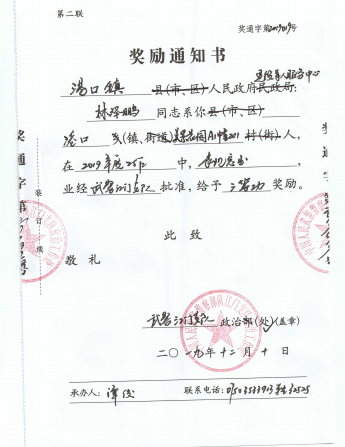 第二联
奖通字第2019019号
奖励通知书
退役军人服务中心
汤口镇 县(市、区)人民政府民政局:
林泽鹏 同志系你 县(市、区)
汤口 乡(镇、街道) 村(街)人,
在 2019年度工作 中, 表现突出 ,
业经 武警江门支队 批准,给予 三等功 奖励。
此致
敬礼
武警江门支队 政治部(处)(盖章)
二〇一九年十二月十日
承办人: 谭俊 联系电话:
奖通字第
装订线